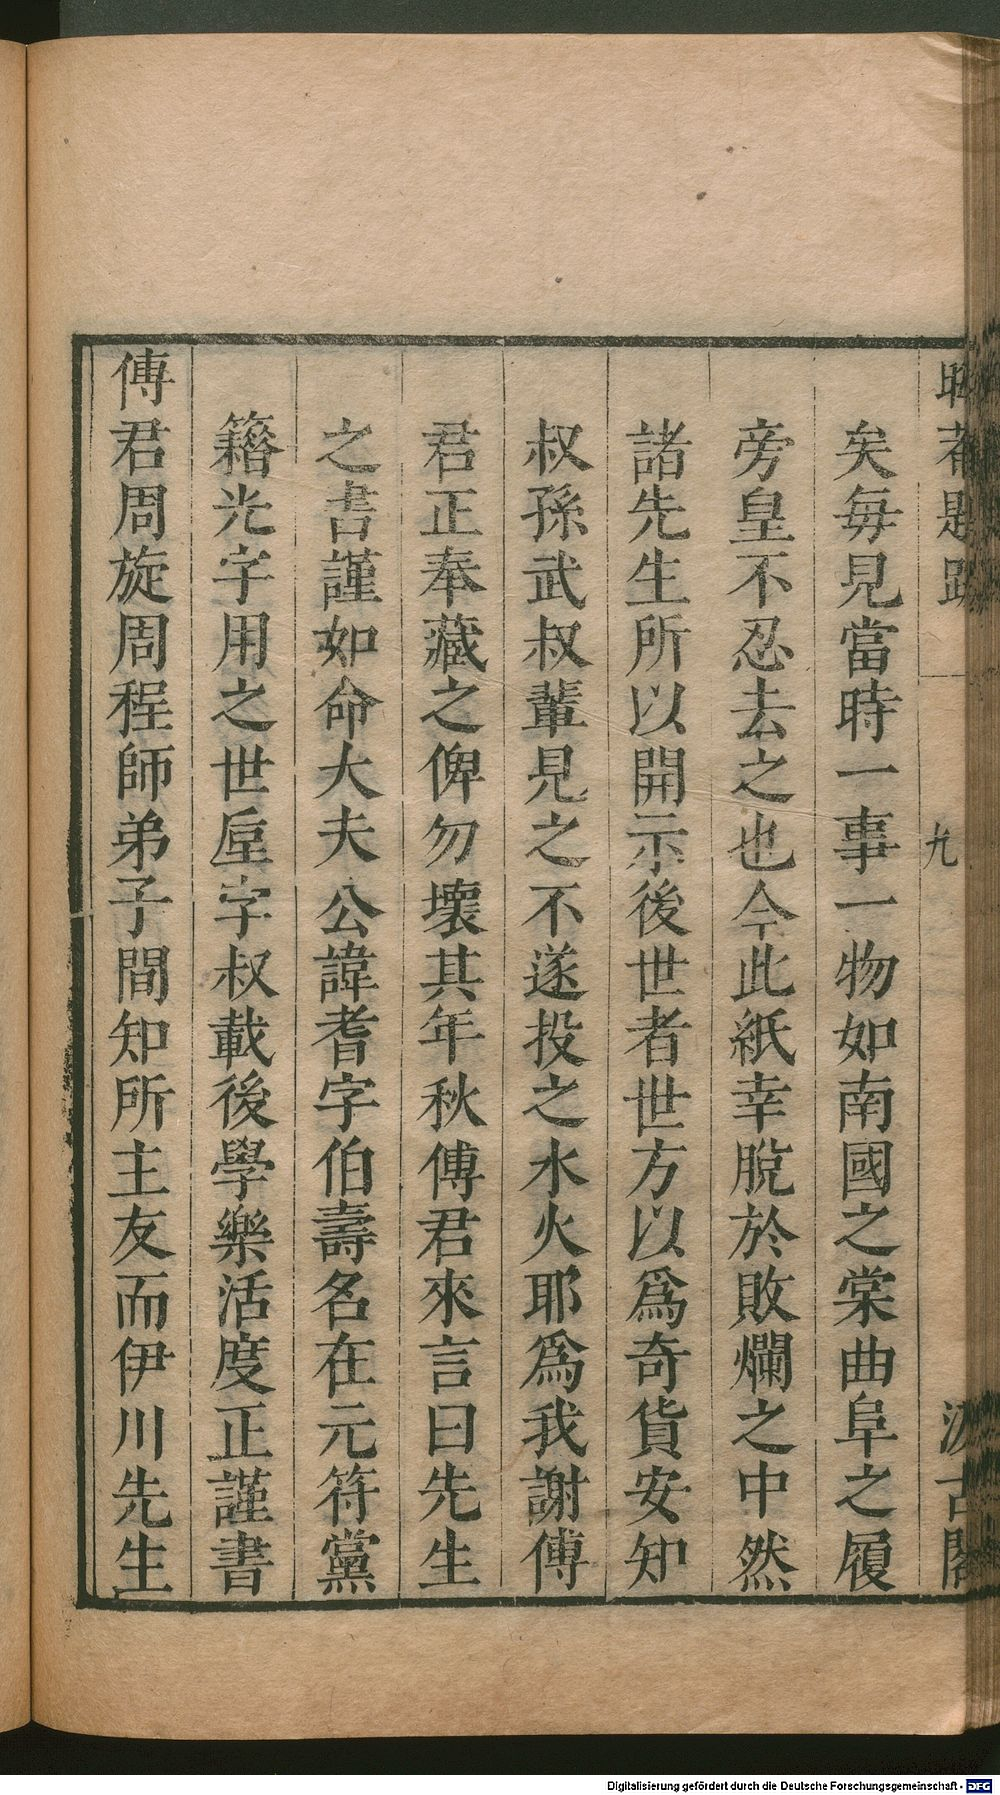 矣每見當時一事一物如南國之棠曲阜之履
旁皇不忍去之也今此紙幸脫於敗爛之中然
諸先生所以開示後世者世方以爲奇貨安知
叔孫武叔輩見之不遂投之水火耶爲我謝傅
君正奉藏之俾勿壞其年秋傅君來言曰先生
之書謹如命大夫公諱耆字伯壽名在元符黨
籍光字用之世垕字叔載後學樂活度正謹書
傅君周旋周程師弟子間知所主友而伊川先生
九
古閣
Digitalisierung gefördert durch die Deutsche Forschungsgemeinschaft - DFG